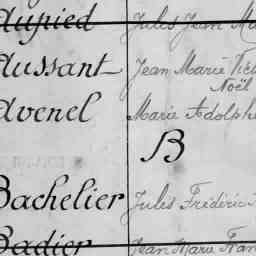 Aupied Jules Jean Ma
Aussant Jean Marie Vic
Noël
Avenel Marie Adolphe
B
Bachelier Jules Frédéric
Badier Jean Marie Fran